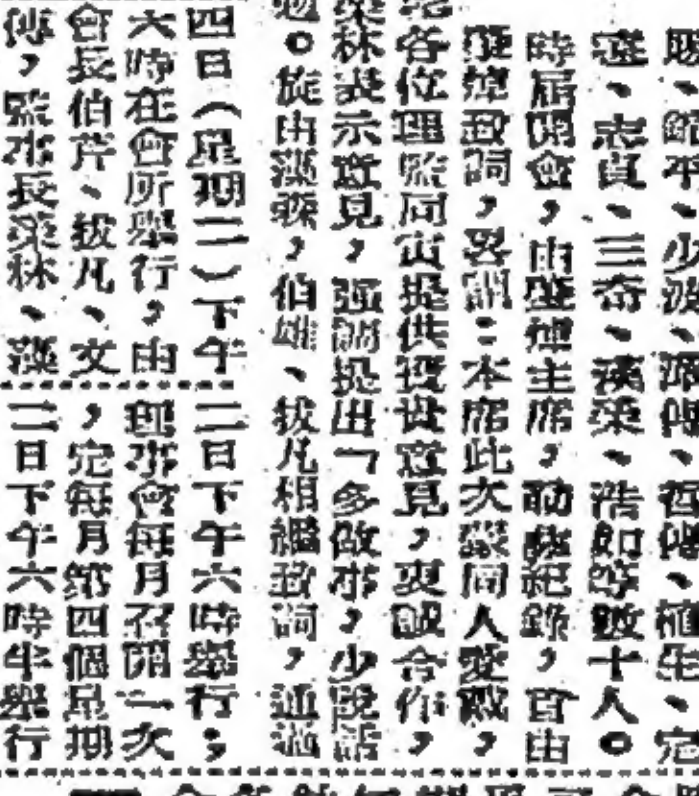 賜、錦平、少波、滌傳、石傳、植生、定
、志貞、三奇、漢榮、浩如等數十人。
時屆開會,由 主席, 紀錄,首由
 致詞,畧謂:本席此次蒙同人愛戴,
各位理監同寅提供寶貴意見,衷誠合作,
林表示意見,強調提出「多做事,少說話
。旋由漢 ,伯雄、拔凡相繼致詞,通過
四日(星期二)下午
六時在會所舉行,由
會長伯芹、拔凡、文
傳,監事長榮林、漢
二日下午六時舉行;
理事會每月召開一次
,定每月第四個星期
二日下午六時半舉行